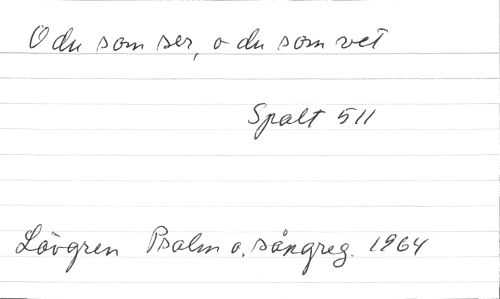 O du som ser, o du som vet
Spalt 511
Lövgren Psalm o. sångreg. 1964